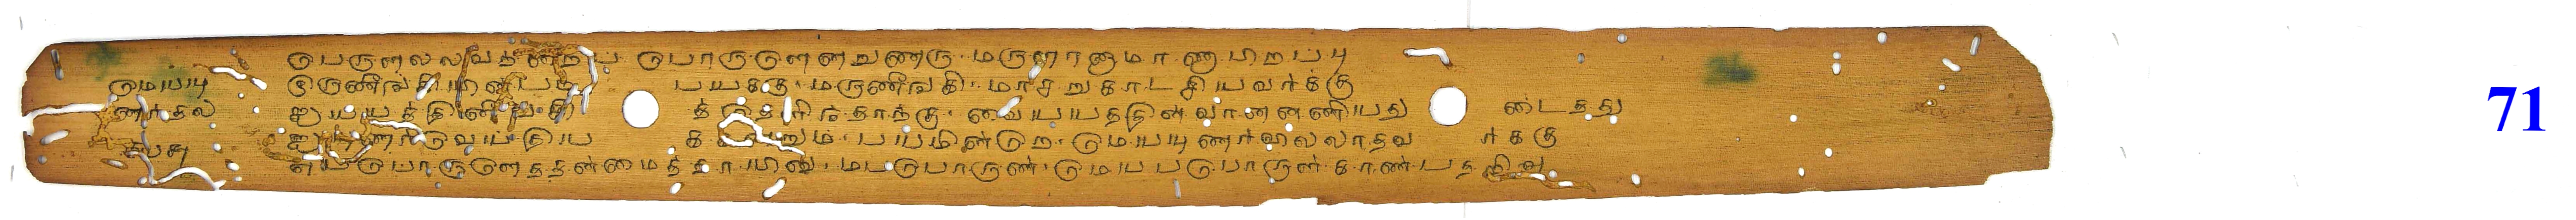 பொருளலலவற்றைப் பொருளென்றுணரு மருளானாமாணாபிறப்பு
மெய்யு இருணீங்கியின்பம் பயக்கு மருணீங்கி மாசறுகாட்சியவர்க்கு
ணர்தல் ஐயயத்தினீங்கி த்தெளிந்தார்க்கு வையயத்தின் வானனணியது டைத்து
ஐயுணர்வெய்திய க்கண்ணும் பயமின்றே மெய்யுணர்வில்லாதவ ர்க்கு
எப்பொருளெத்தன்மைத்தாயினு மப்பொருண் மெய்ப்பொருள் காண்பதறிவு
71